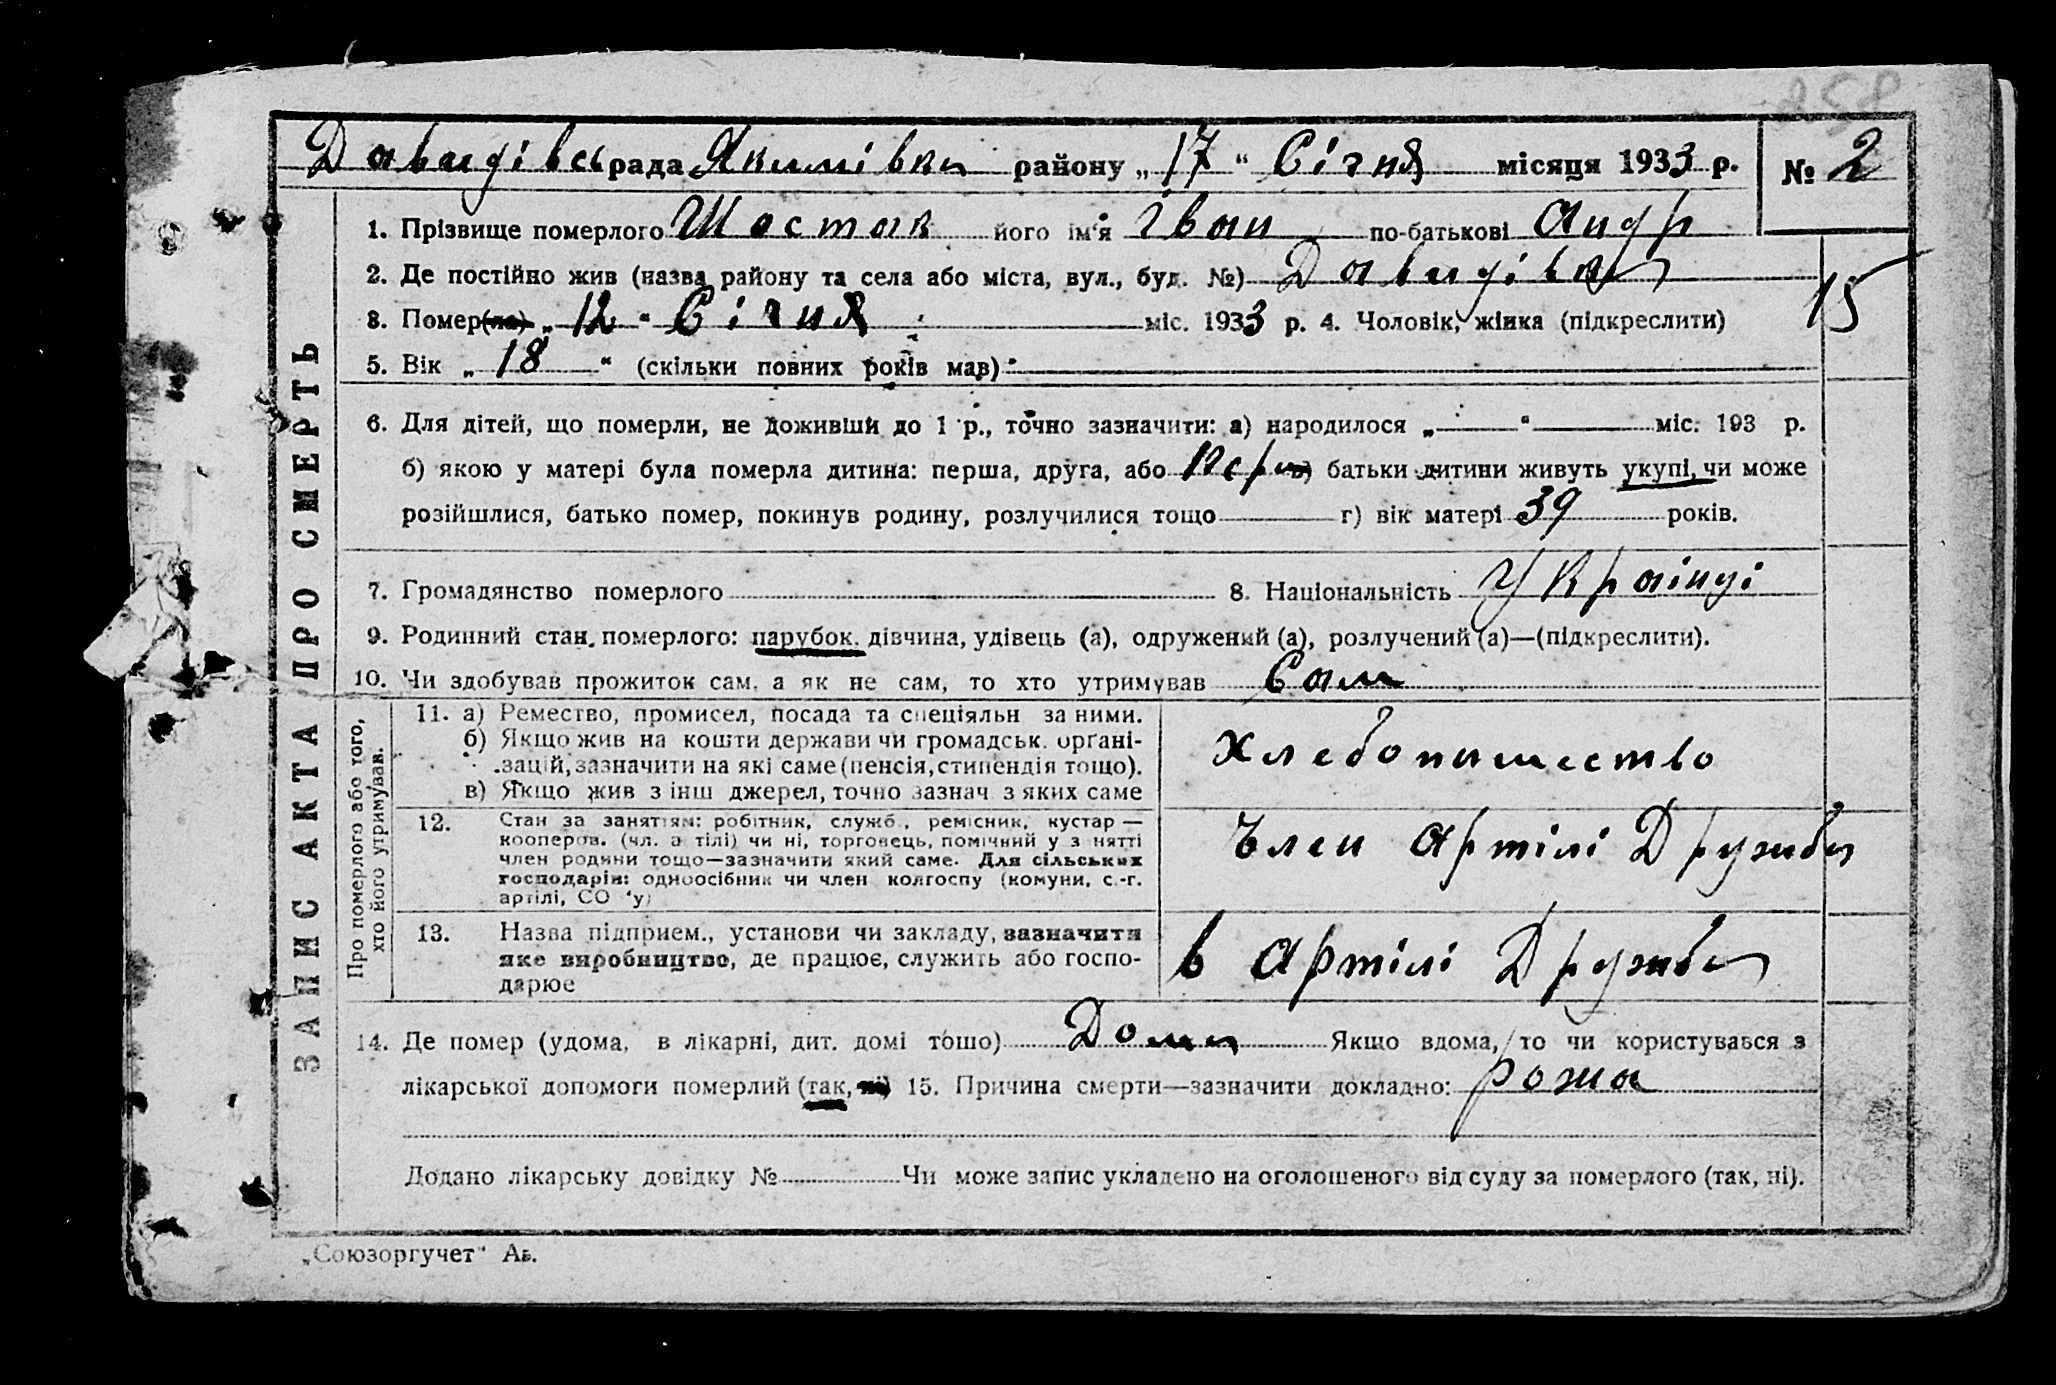 258
Давидівсь рада Якимівки району „17“ Січня місяця 1933 р. № 2
1. Прізвище померлого Шостак його ім'я Іван по-батькові Андр
2. Де постійно жив (назва району та села або міста, вул., буд. №) Давидівка
3. Помер(ла) „12“ Січня міс. 1933 р. 4. Чоловік, жінка (підкреслити) 15
5. Вік „18“ (скільки повних років мав)
6. Для дітей, що померли, не доживши до 1 р., точно зазначити: а) народилося „ “ міс. 193 р.
б) якою у матері була померла дитина: перша, друга, або перш в) батьки дитини живуть укупі, чи може
розійшлися, батько помер, покинув родину, розлучилися тощо г) вік матері 39 років.
7. Громадянство померлого 8. Національність Українці
9. Родинний стан. померлого: парубок, дівчина, удівець (а), одружений (а), розлучений (а)—(підкреслити).
10. Чи здобував прожиток сам, а як не сам, то хто утримував Сам
ЗАПИС АКТА ПРО СМЕРТЬ
Про померлого або того,
хто його утримував.
11. а) Ремество, промисел, посада та спеціяльн за ними.
б) Якщо жив на кошти держави чи громадськ. органі-
зацій, зазначити на які саме (пенсія, стипендія тощо).
в) Якщо жив з інш джерел, точно зазнач з яких саме
Хлебопашество
12. Стан за заняттям: робітник, служб., ремісник, кустар —
кооперов. (чл. а тілі) чи ні, торговець, помічний у з нятті
член родини тощо—зазначити який саме. Для сільських
господарів: одноосібник чи член колгоспу (комуни, с.-г.
артілі, СО 'у)
Член Артілі Дружба
13. Назва підприєм., установи чи закладу, зазначити
яке виробництво, де працює, служить або госпо-
дарює
в Артілі Дружба
14. Де помер (удома, в лікарні, дит. домі тощо) Дома Якщо вдома, то чи користувався з
лікарської допомоги померлий (так, ні) 15. Причина смерти—зазначити докладно: рожа
Додано лікарську довідку № Чи може запис укладено на оголошеного від суду за померлого (так, ні).
„Союзоргучет" Ав.